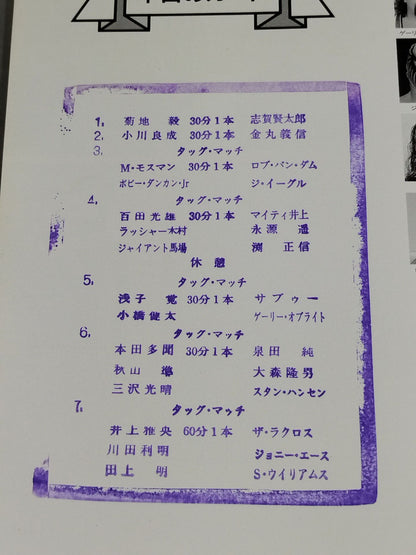 1. 菊地 毅 30分1本 志賀賢太郎
2. 小川良成 30分1本 金丸義信
3. タッグ・マッチ
M・モスマン 30分1本 ロブ・バン・ダム
ボビー・ダンカン・Jr ジ・イーグル
4. タッグ・マッチ
百田光雄 30分1本 マイティ井上
ラッシャー木村 永源 遥
ジャイアント馬場 渕 正信
休憩
5. タッグ・マッチ
浅子 覚 30分1本 サブゥー
小橋健太 ゲーリー・オブライト
6. タッグ・マッチ
本田多聞 30分1本 泉田 純
秋山 準 大森隆男
三沢光晴 スタン・ハンセン
7. タッグ・マッチ
井上雅央 60分1本 ザ・ラクロス
川田利明 ジョニー・エース
田上 明 S・ウイリアムス